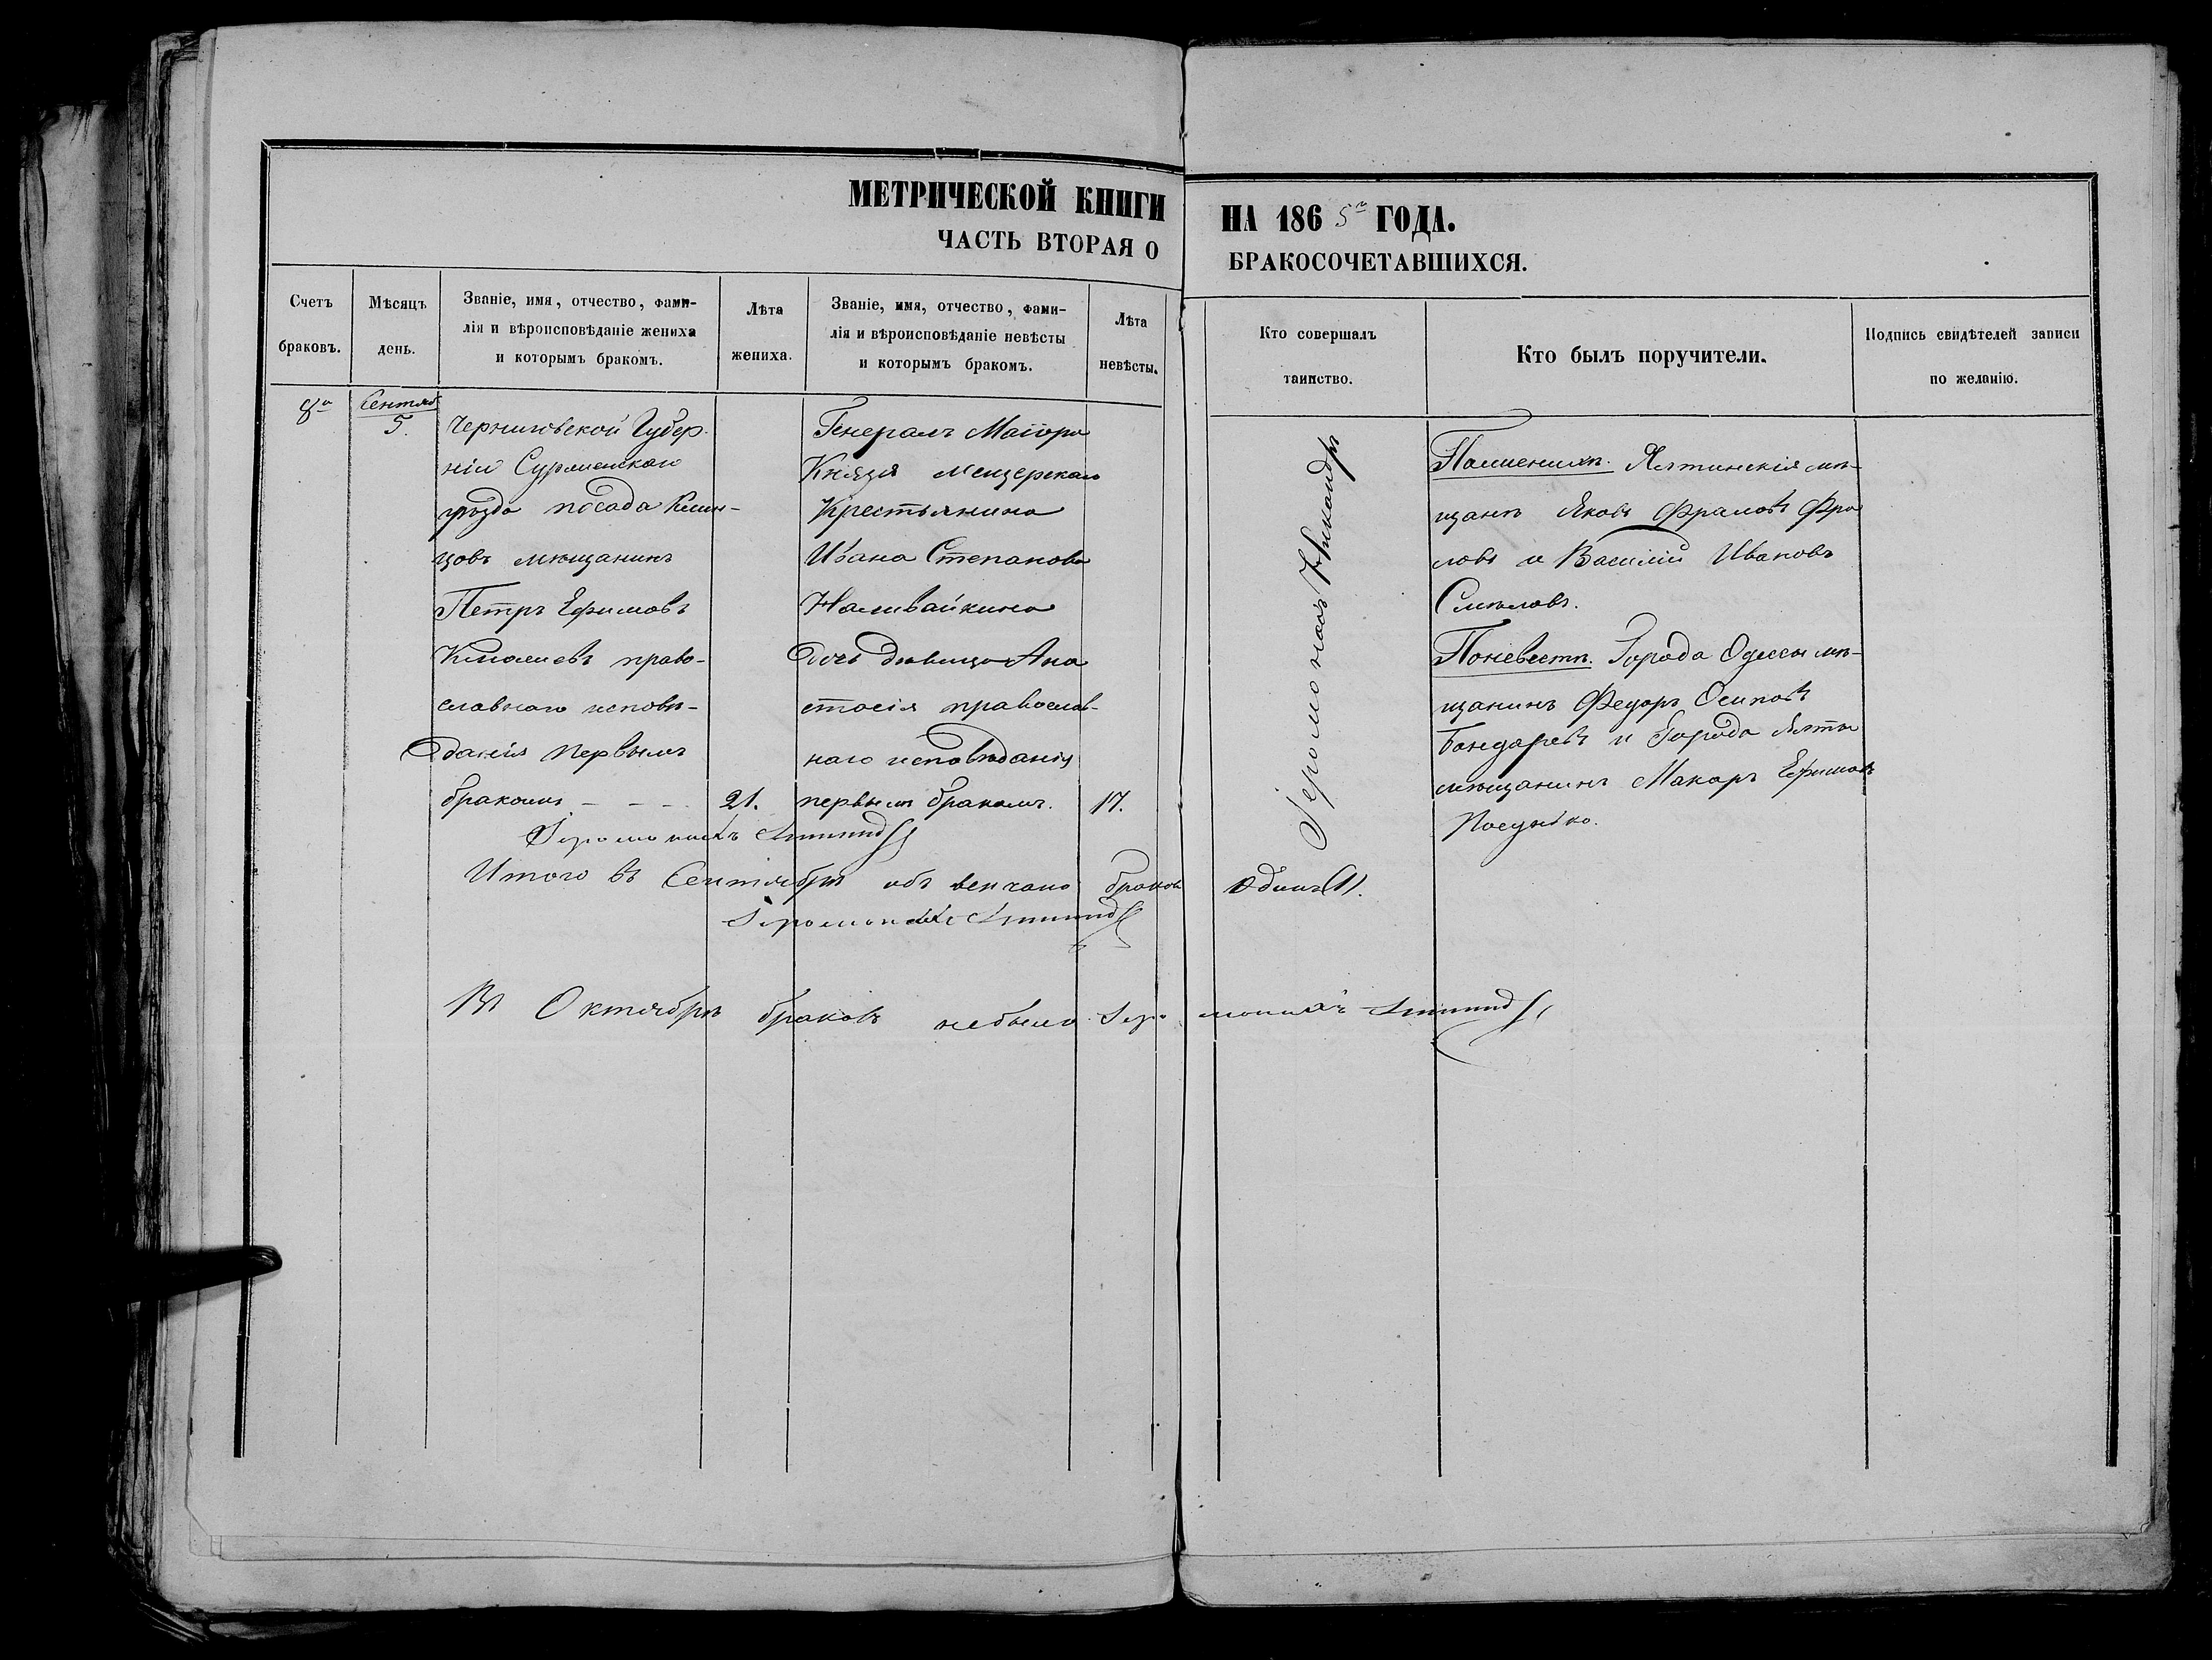 МЕТРИЧЕСКОЙ КНИГИ НА 1865 ГОДА.
ЧАСТЬ ВТОРАЯ О БРАКОСОЧЕТАВШИХСЯ.
Счетъ браковъ.
Мѣсяцъ день.
Званіе, имя, отчество, фами-
лія и вѣроисповѣданіе жениха
и которымъ бракомъ.
Лѣта жениха.
Званіе, имя, отчество, фами-
лія и вѣроисповѣданіе невѣсты
и которымъ бракомъ.
Лѣта невѣсты.
Кто совершалъ таинство.
Кто былъ поручители.
Подпись свидѣтелей записи
по желанію.
8
Сентяб
5.
Черниговской Губер-
ніи
уѣзда посада Клин-
цовъ мѣщанинъ
Петръ Ефимовъ
право-
славнаго исповѣ-
данія первымъ
бракомъ - - -
21.
Генералъ Маіора
Князя Мещерскаго
Крестьянина
Ивана Степанова
Наливайкина
Дочь дѣвица Ана
стасія православ-
наго исповѣданія
первымъ бракомъ.
17.
Іеромонахъ Никандръ
По женихѣ. Ялтинскія мѣ-
щанѣ Яковъ Фроловъ
и Василій Ивановъ
Смѣловъ.
По невестѣ. Города Одессы мѣ-
щанинъ Федоръ Осиповъ
Бондаревъ и Города Ялты
мѣщанинъ Макаръ Ефимовъ
Іеромонахъ
Итого въ Сентябрѣ обвенчано браковъ Одинъ (1).
Іеромонахъ
Въ Октябрѣ браковъ небыло Іеромонахъ